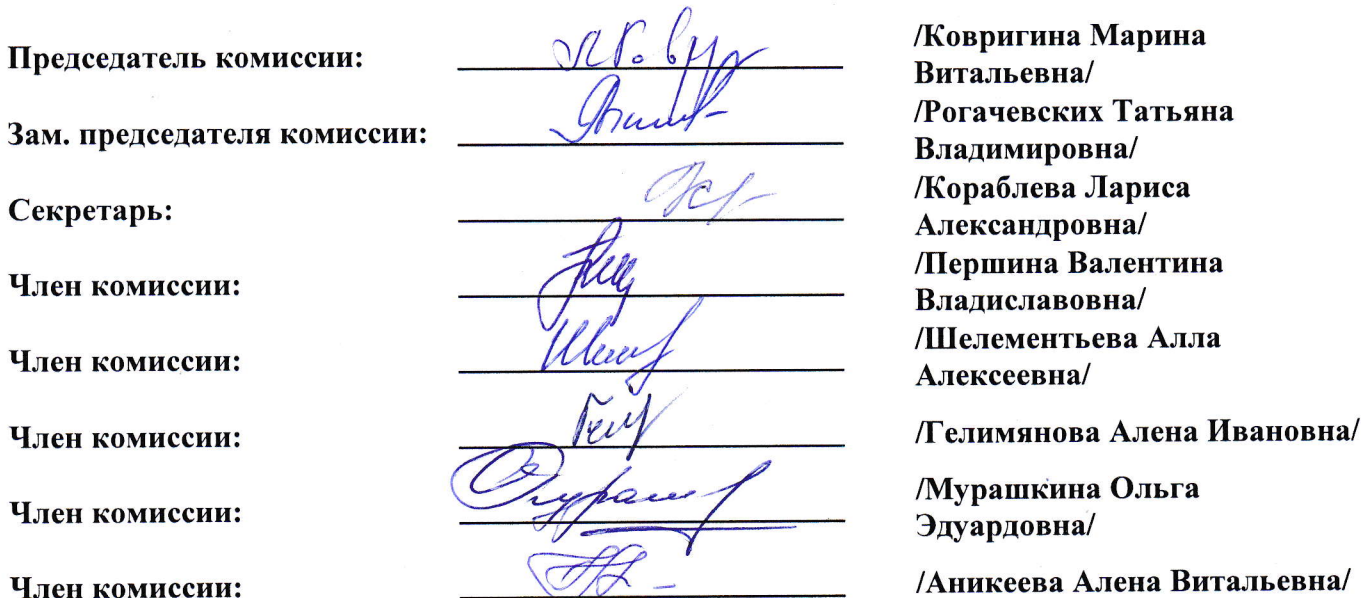 Председатель комиссии: /Ковригина Марина
Витальевна/
Зам. председателя комиссии: /Рогачевских Татьяна
Владимировна/
Секретарь: /Кораблева Лариса
Александровна/
Член комиссии: /Першина Валентина
Владиславовна/
Член комиссии: /Шелементьева Алла
Алексеевна/
Член комиссии: /Гелимянова Алена Ивановна/
Член комиссии: /Мурашкина Ольга
Эдуардовна/
Член комиссии: /Аникеева Алена Витальевна/